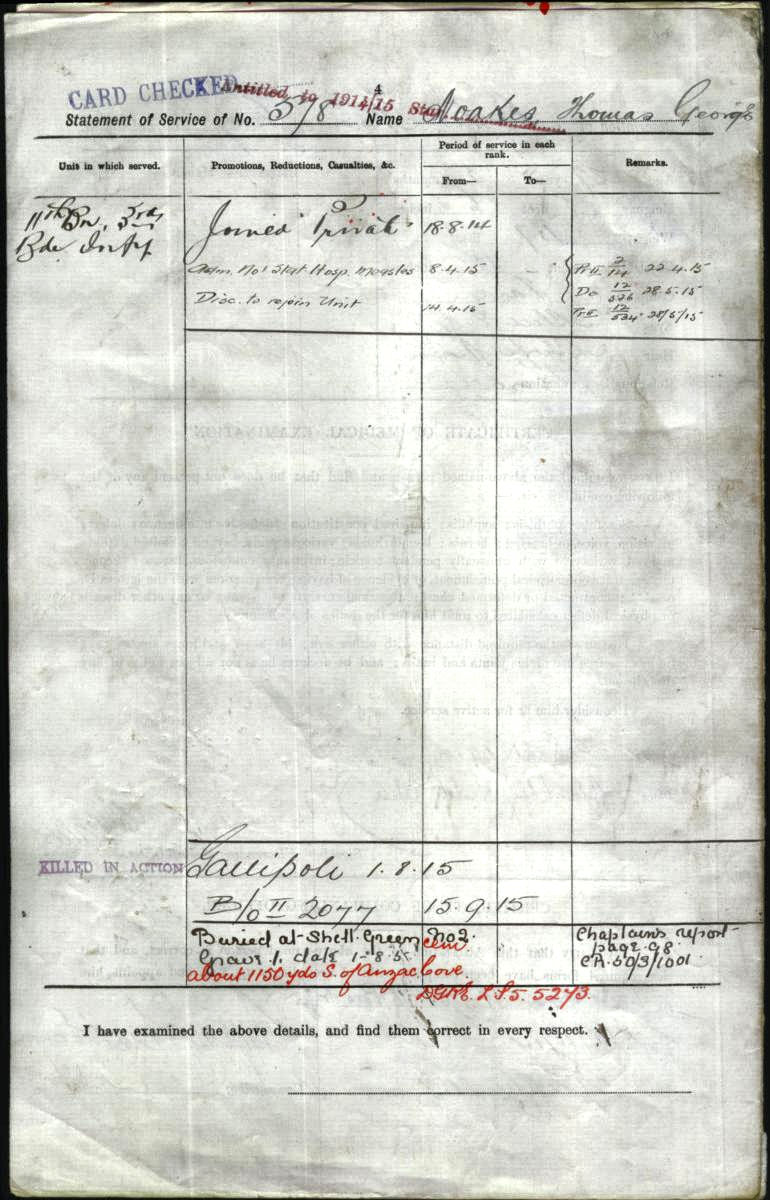 CARD CHECKED Entitled to 1914/15 Star
Statement of Service of No. 578 Name Noakes, Thomas George
Unit in which served.
Promotions, Reductions, Casualties, &c.
Period of service in each rank.
From—
To—
Remarks.
11th Bn, 3rd
Bde Infy
Joined Private 18.8.14
Adm. No1 Stat Hosp. Measles 8.4.15
Pt II 2/14 22.4.15
Do 12/526 28.5.15
Disc. to rejoin Unit 14.4.15
Pt II 12/534 28/5/15
KILLED IN ACTION Gallipoli 1.8.15
B/o II 2077 15.9.15
Buried at Shell Green No2. cem
Chaplains report
Grave 1. date 1-8-5
page 98
about 1150 yds S. of Anzac Cove
CR. 50/3/1001
5273.
I have examined the above details, and find them correct in every respect.